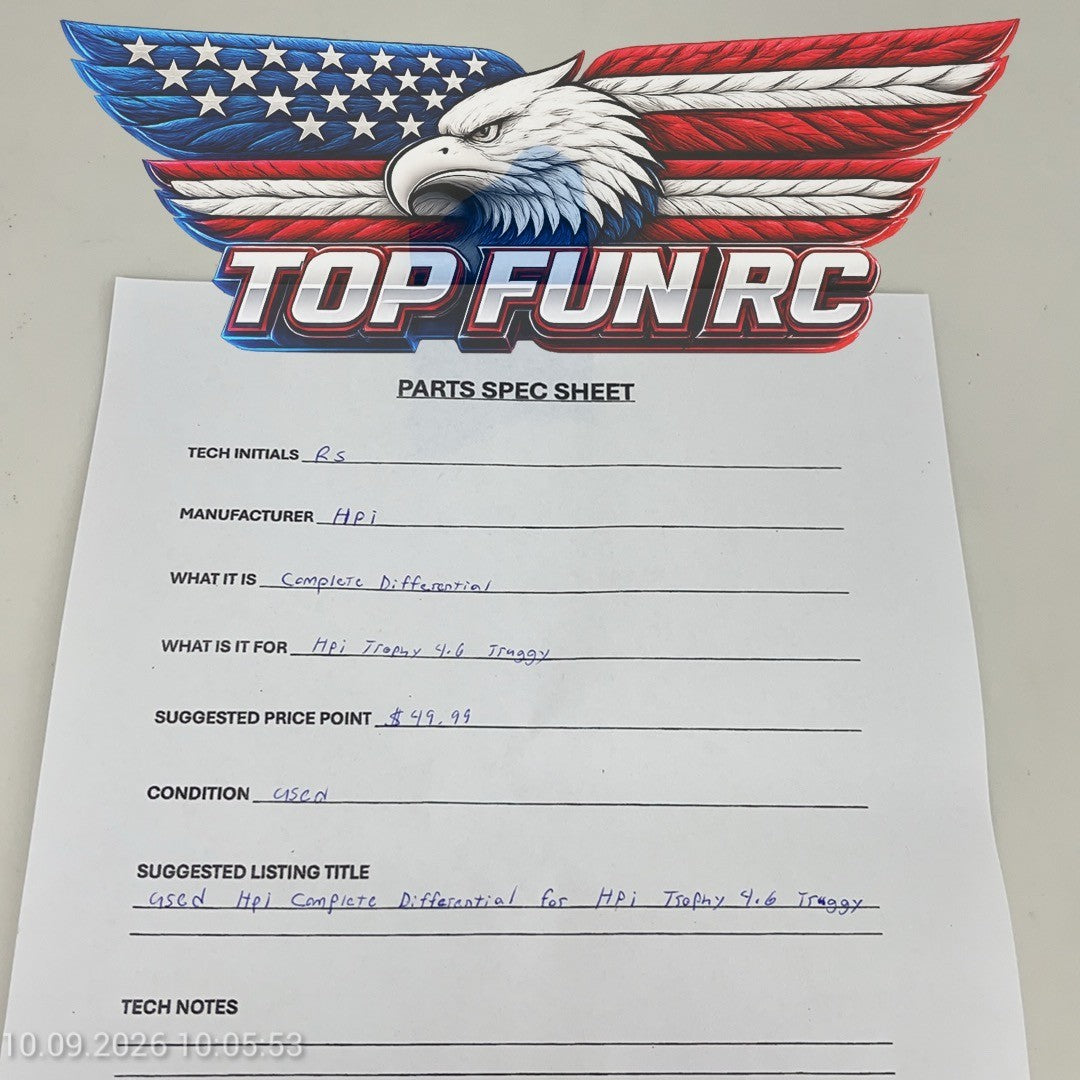 TOP FUN RC
PARTS SPEC SHEET
TECH INITIALS RS
MANUFACTURER HPi
WHAT IT IS Complete Differential
WHAT IS IT FOR HPi Trophy 4.6 Truggy
SUGGESTED PRICE POINT $49.99
CONDITION used
SUGGESTED LISTING TITLE
used HPi Complete Differential for HPi Trophy 4.6 Truggy
TECH NOTES
10.09.2026 10:05:53